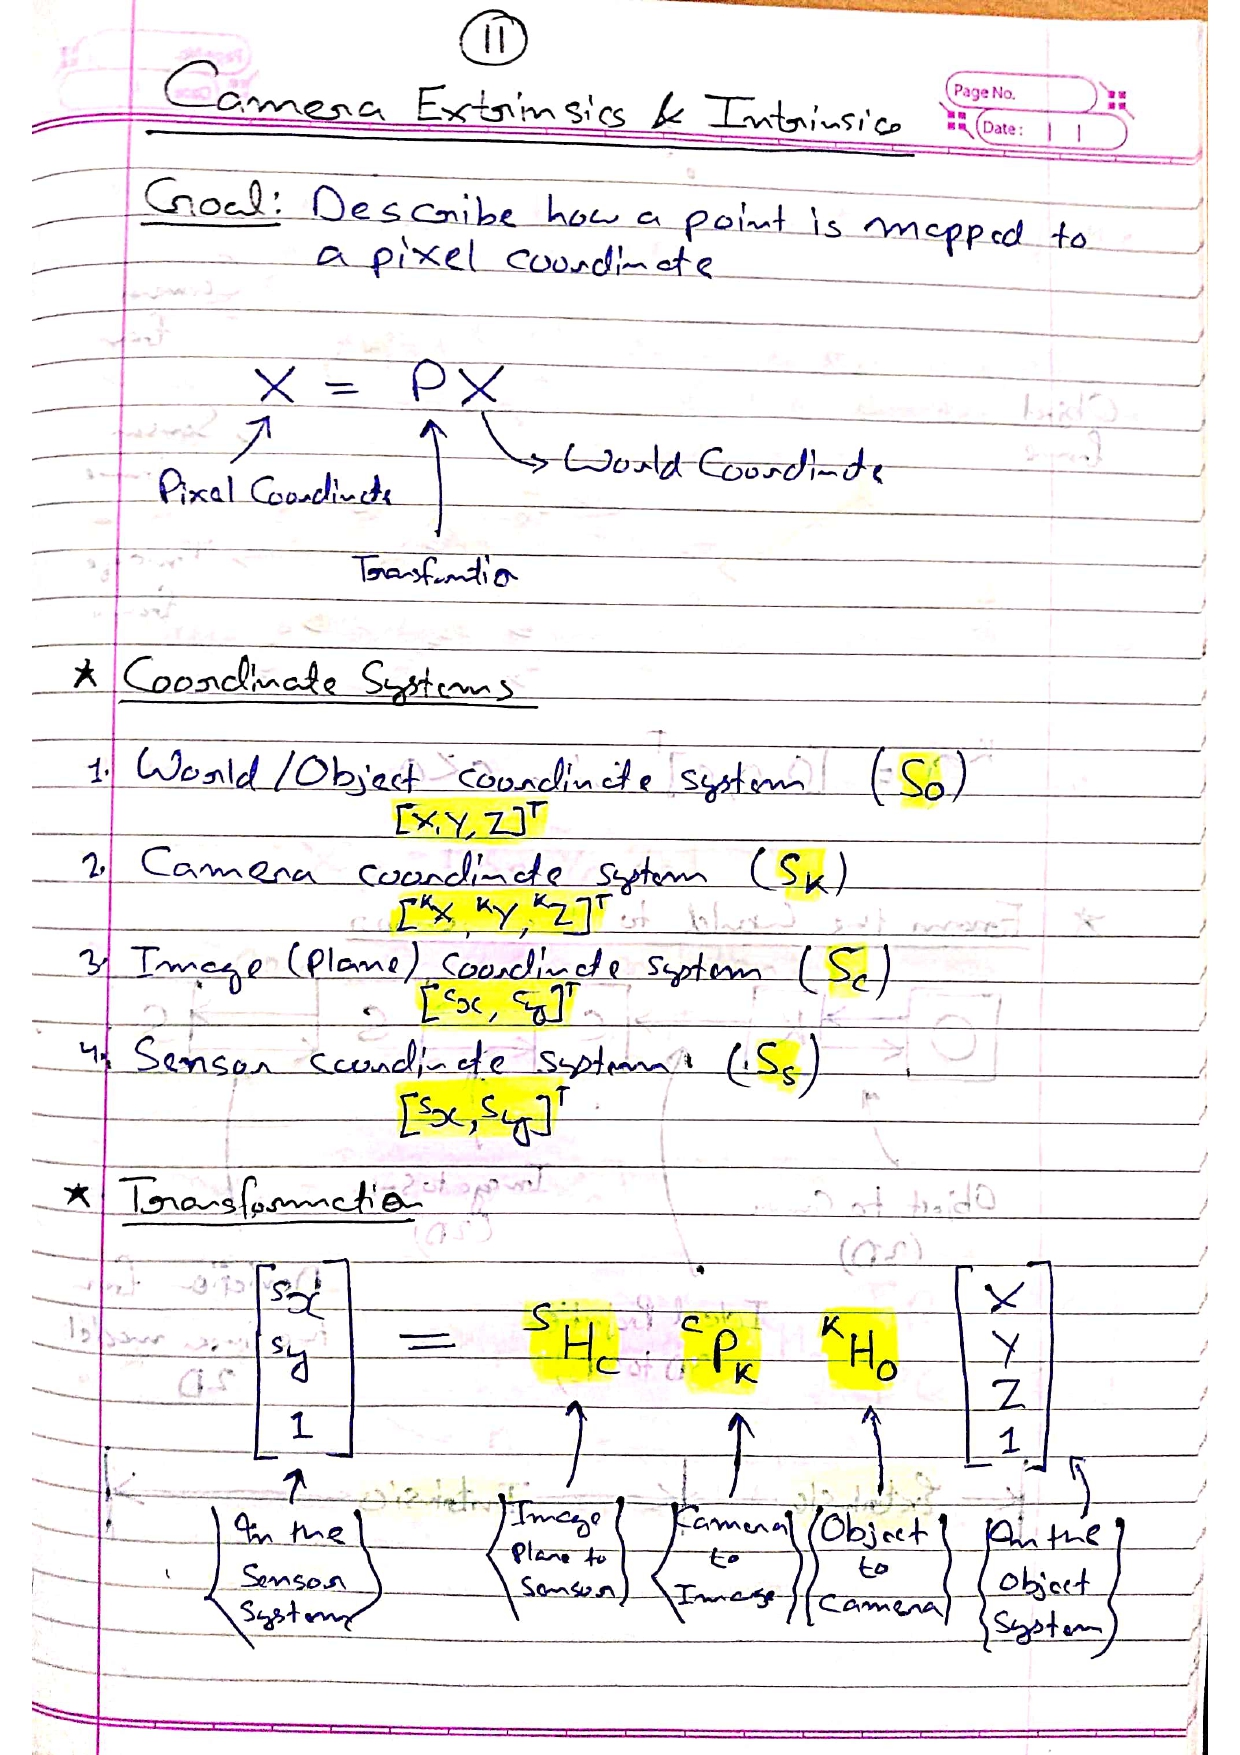 11
Camera Extrinsics & Intrinsics
Page No.
Date:
Goal: Describe how a point is mapped to
a pixel coordinate
X = PX
World Coordinate
Pixel Coordinate
Transformation
* Coordinate Systems
1. World/Object coordinate system (S₀)
[X, Y, Z]ᵀ
2. Camera coordinate system (Sₖ)
[ᵏX, ᵏY, ᵏZ]ᵀ
3. Image (Plane) Coordinate system (S꜀)
[ᶜx, ᶜy]ᵀ
4. Sensor coordinate system (Sₛ)
[ˢx, ˢy]ᵀ
* Transformation
[ˢx ˢy 1] = ˢH꜀ . ᶜPₖ ᴷH₀ [X Y Z 1]
In the Sensor System
Image Plane to Sensor
Camera to Image
Object to Camera
In the Object System